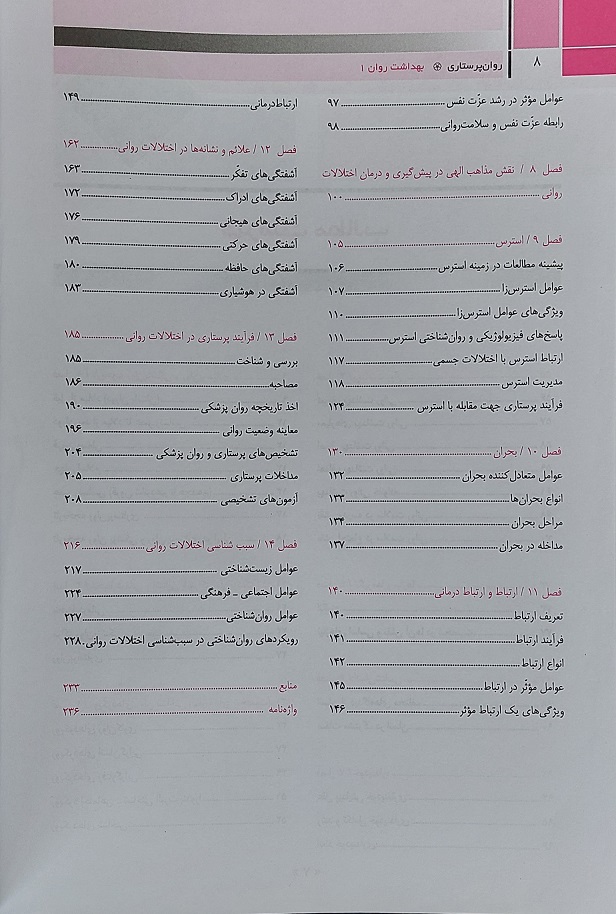 ۸
روان‌پرستاری بهداشت روان ۱
عوامل مؤثر در رشد عزّت نفس ........ ۹۷
رابطه عزّت نفس و سلامت‌روانی ........ ۹۸
فصل ۸ / نقش مذاهب الهی در پیش‌گیری و درمان اختلالات
روانی ........ ۱۰۰
فصل ۹ / استرس ........ ۱۰۵
پیشینه مطالعات در زمینه استرس ........ ۱۰۶
عوامل استرس‌زا ........ ۱۰۷
ویژگی‌های عوامل استرس‌زا ........ ۱۱۰
پاسخ‌های فیزیولوژیکی و روان‌شناختی استرس ........ ۱۱۱
ارتباط استرس با اختلالات جسمی ........ ۱۱۷
مدیریت استرس ........ ۱۱۸
فرآیند پرستاری جهت مقابله با استرس ........ ۱۲۴
فصل ۱۰ / بحران ........ ۱۳۰
عوامل متعادل‌کننده بحران ........ ۱۳۲
انواع بحران‌ها ........ ۱۳۳
مراحل بحران ........ ۱۳۴
مداخله در بحران ........ ۱۳۷
فصل ۱۱ / ارتباط و ارتباط درمانی ........ ۱۴۰
تعریف ارتباط ........ ۱۴۰
فرآیند ارتباط ........ ۱۴۱
انواع ارتباط ........ ۱۴۲
عوامل مؤثّر در ارتباط ........ ۱۴۵
ویژگی‌های یک ارتباط مؤثر ........ ۱۴۶
ارتباط‌درمانی ........ ۱۴۹
فصل ۱۲ / علائم و نشانه‌ها در اختلالات روانی ........ ۱۶۲
آشفتگی‌های تفکر ........ ۱۶۳
آشفتگی‌های ادراک ........ ۱۷۲
آشفتگی‌های هیجانی ........ ۱۷۶
آشفتگی‌های حرکتی ........ ۱۷۹
آشفتگی‌های حافظه ........ ۱۸۰
آشفتگی در هوشیاری ........ ۱۸۳
فصل ۱۳ / فرآیند پرستاری در اختلالات روانی ........ ۱۸۵
بررسی و شناخت ........ ۱۸۵
مصاحبه ........ ۱۸۶
اخذ تاریخچه روان پزشکی ........ ۱۹۰
معاینه وضعیت روانی ........ ۱۹۶
تشخیص‌های پرستاری و روان پزشکی ........ ۲۰۴
مداخلات پرستاری ........ ۲۰۵
آزمون‌های تشخیصی ........ ۲۰۸
فصل ۱۴ / سبب شناسی اختلالات روانی ........ ۲۱۶
عوامل زیست‌شناختی ........ ۲۱۷
عوامل اجتماعی ـ فرهنگی ........ ۲۲۴
عوامل روان‌شناختی ........ ۲۲۷
رویکردهای روان‌شناختی در سبب‌شناسی اختلالات روانی. ۲۲۸
منابع ........ ۲۳۳
واژه‌نامه ........ ۲۳۶